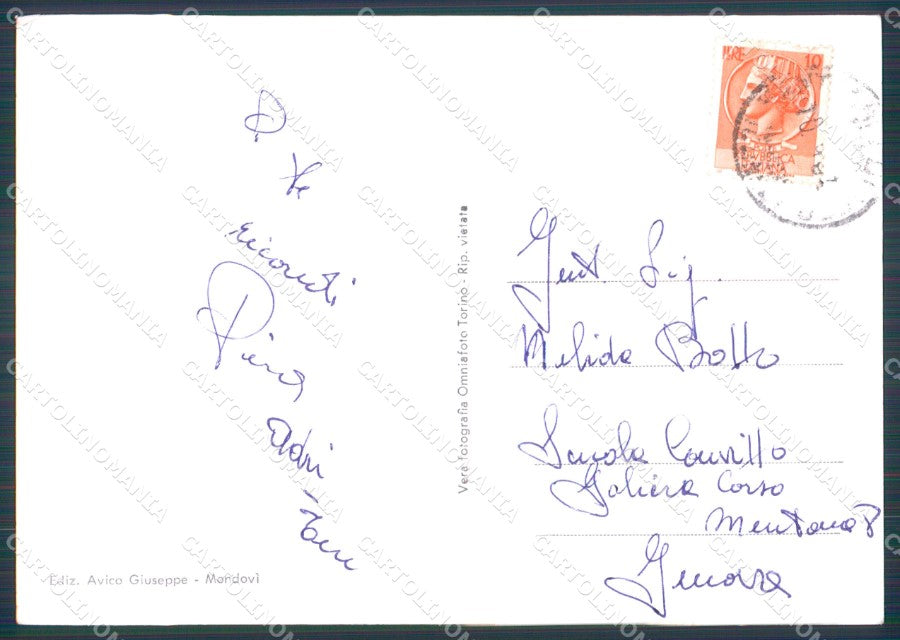 LIRE 10
REPUBBLICA
ITALIANA
ricordi
Piera
Adri
Gent. Sig.
Melida Botto
Scuola Convitto
Galiera Corso
Mentana 8
Genova
Vera fotografia Omniafoto Torino - Rip. vietata
Ediz. Avico Giuseppe - Mondovì
CARTOLINOMANIA